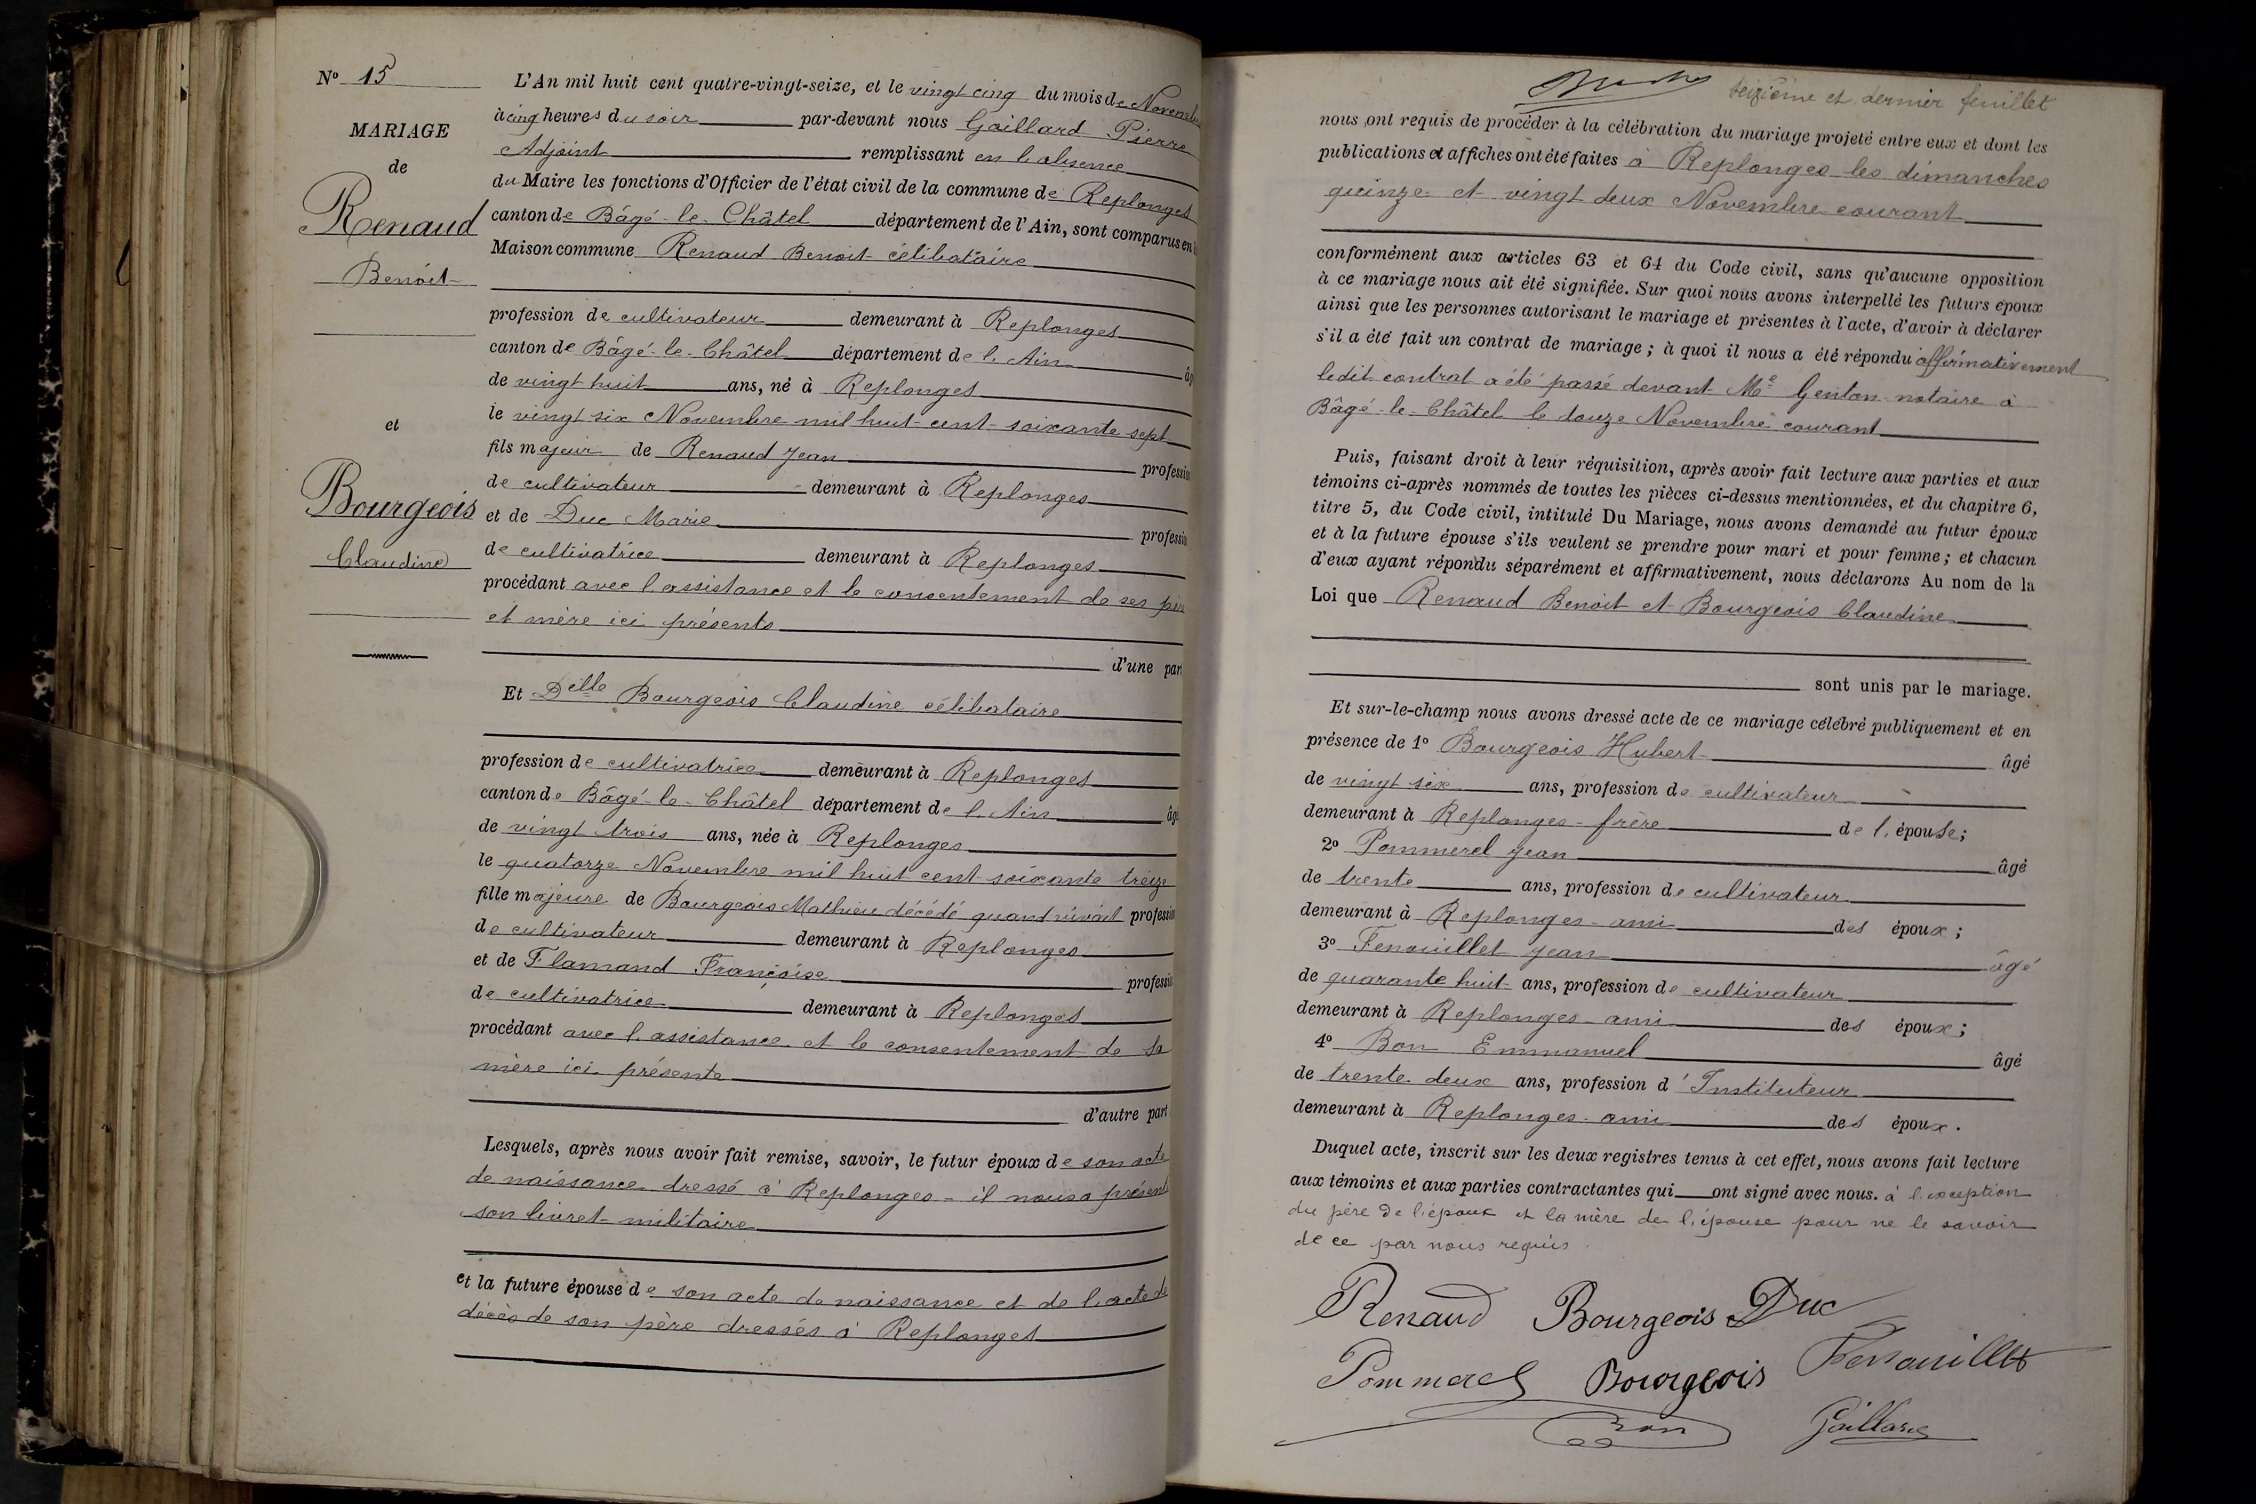 Nº 15
MARIAGE
de
Renaud
Benoit
et
Bourgeois
Claudine
L'An mil huit cent quatre-vingt-seize, et le vingt cinq du mois de Novembre
à cinq heures du soir par-devant nous Gaillard Pierre
Adjoint remplissant en l'absence
du Maire les fonctions d'Officier de l'état civil de la commune de Replonges
canton de Bâgé-le-Châtel département de l'Ain, sont comparus en la
Maison commune Renaud Benoit célibataire
profession de cultivateur demeurant à Replonges
canton de Bâgé-le-Châtel département de l'Ain âgé
de vingt huit ans, né à Replonges
le vingt six Novembre mil huit cent soixante sept
fils majeur de Renaud Jean profession
de cultivateur demeurant à Replonges
et de Duc Marie profession
de cultivatrice demeurant à Replonges
procédant avec l'assistance et le consentement de ses père
et mère ici présents
d'une part
Et Delle Bourgeois Claudine célibataire
profession de cultivatrice demeurant à Replonges
canton de Bâgé-le-Châtel département de l'Ain âgé
de vingt trois ans, née à Replonges
le quatorze Novembre mil huit cent soixante treize
fille majeure de Bourgeois Mathieu décédé quand vivait profession
de cultivateur demeurant à Replonges
et de Flamand Françoise profession
de cultivatrice demeurant à Replonges
procédant avec l'assistance et le consentement de sa
mère ici présente
d'autre part
Lesquels, après nous avoir fait remise, savoir, le futur époux de son acte
de naissance dressé à Replonges - il nous a présenté
son livret militaire
et la future épouse de son acte de naissance et de l'acte de
décès de son père dressés à Replonges
seizième et dernier feuillet
nous ont requis de procéder à la célébration du mariage projeté entre eux et dont les
publications et affiches ont été faites à Replonges les dimanches
quinze et vingt deux Novembre courant
conformément aux articles 63 et 64 du Code civil, sans qu'aucune opposition
à ce mariage nous ait été signifiée. Sur quoi nous avons interpellé les futurs époux
ainsi que les personnes autorisant le mariage et présentes à l'acte, d'avoir à déclarer
s'il a été fait un contrat de mariage ; à quoi il nous a été répondu affirmativement
ledit contrat a été passé devant Me Genton notaire à
Bâgé-le-Châtel le douze Novembre courant
Puis, faisant droit à leur réquisition, après avoir fait lecture aux parties et aux
témoins ci-après nommés de toutes les pièces ci-dessus mentionnées, et du chapitre 6,
titre 5, du Code civil, intitulé Du Mariage, nous avons demandé au futur époux
et à la future épouse s'ils veulent se prendre pour mari et pour femme ; et chacun
d'eux ayant répondu séparément et affirmativement, nous déclarons Au nom de la
Loi que Renaud Benoit et Bourgeois Claudine
sont unis par le mariage.
Et sur-le-champ nous avons dressé acte de ce mariage célébré publiquement et en
présence de 1º Bourgeois Hubert âgé
de vingt six ans, profession de cultivateur
demeurant à Replonges - frère de l'épouse ;
2º Pommerel Jean âgé
de trente ans, profession de cultivateur
demeurant à Replonges - ami des époux ;
3º Fenouillet Jean âgé
de quarante huit ans, profession de cultivateur
demeurant à Replonges - ami des époux ;
4º Bon Emmanuel âgé
de trente deux ans, profession d'Instituteur
demeurant à Replonges - ami des époux.
Duquel acte, inscrit sur les deux registres tenus à cet effet, nous avons fait lecture
aux témoins et aux parties contractantes qui ont signé avec nous. à l'exception
du père de l'époux et la mère de l'épouse pour ne le savoir
de ce par nous requis.
Renaud Bourgeois Duc
Pommerel Bourgeois Fenouillet
Bon Gaillard